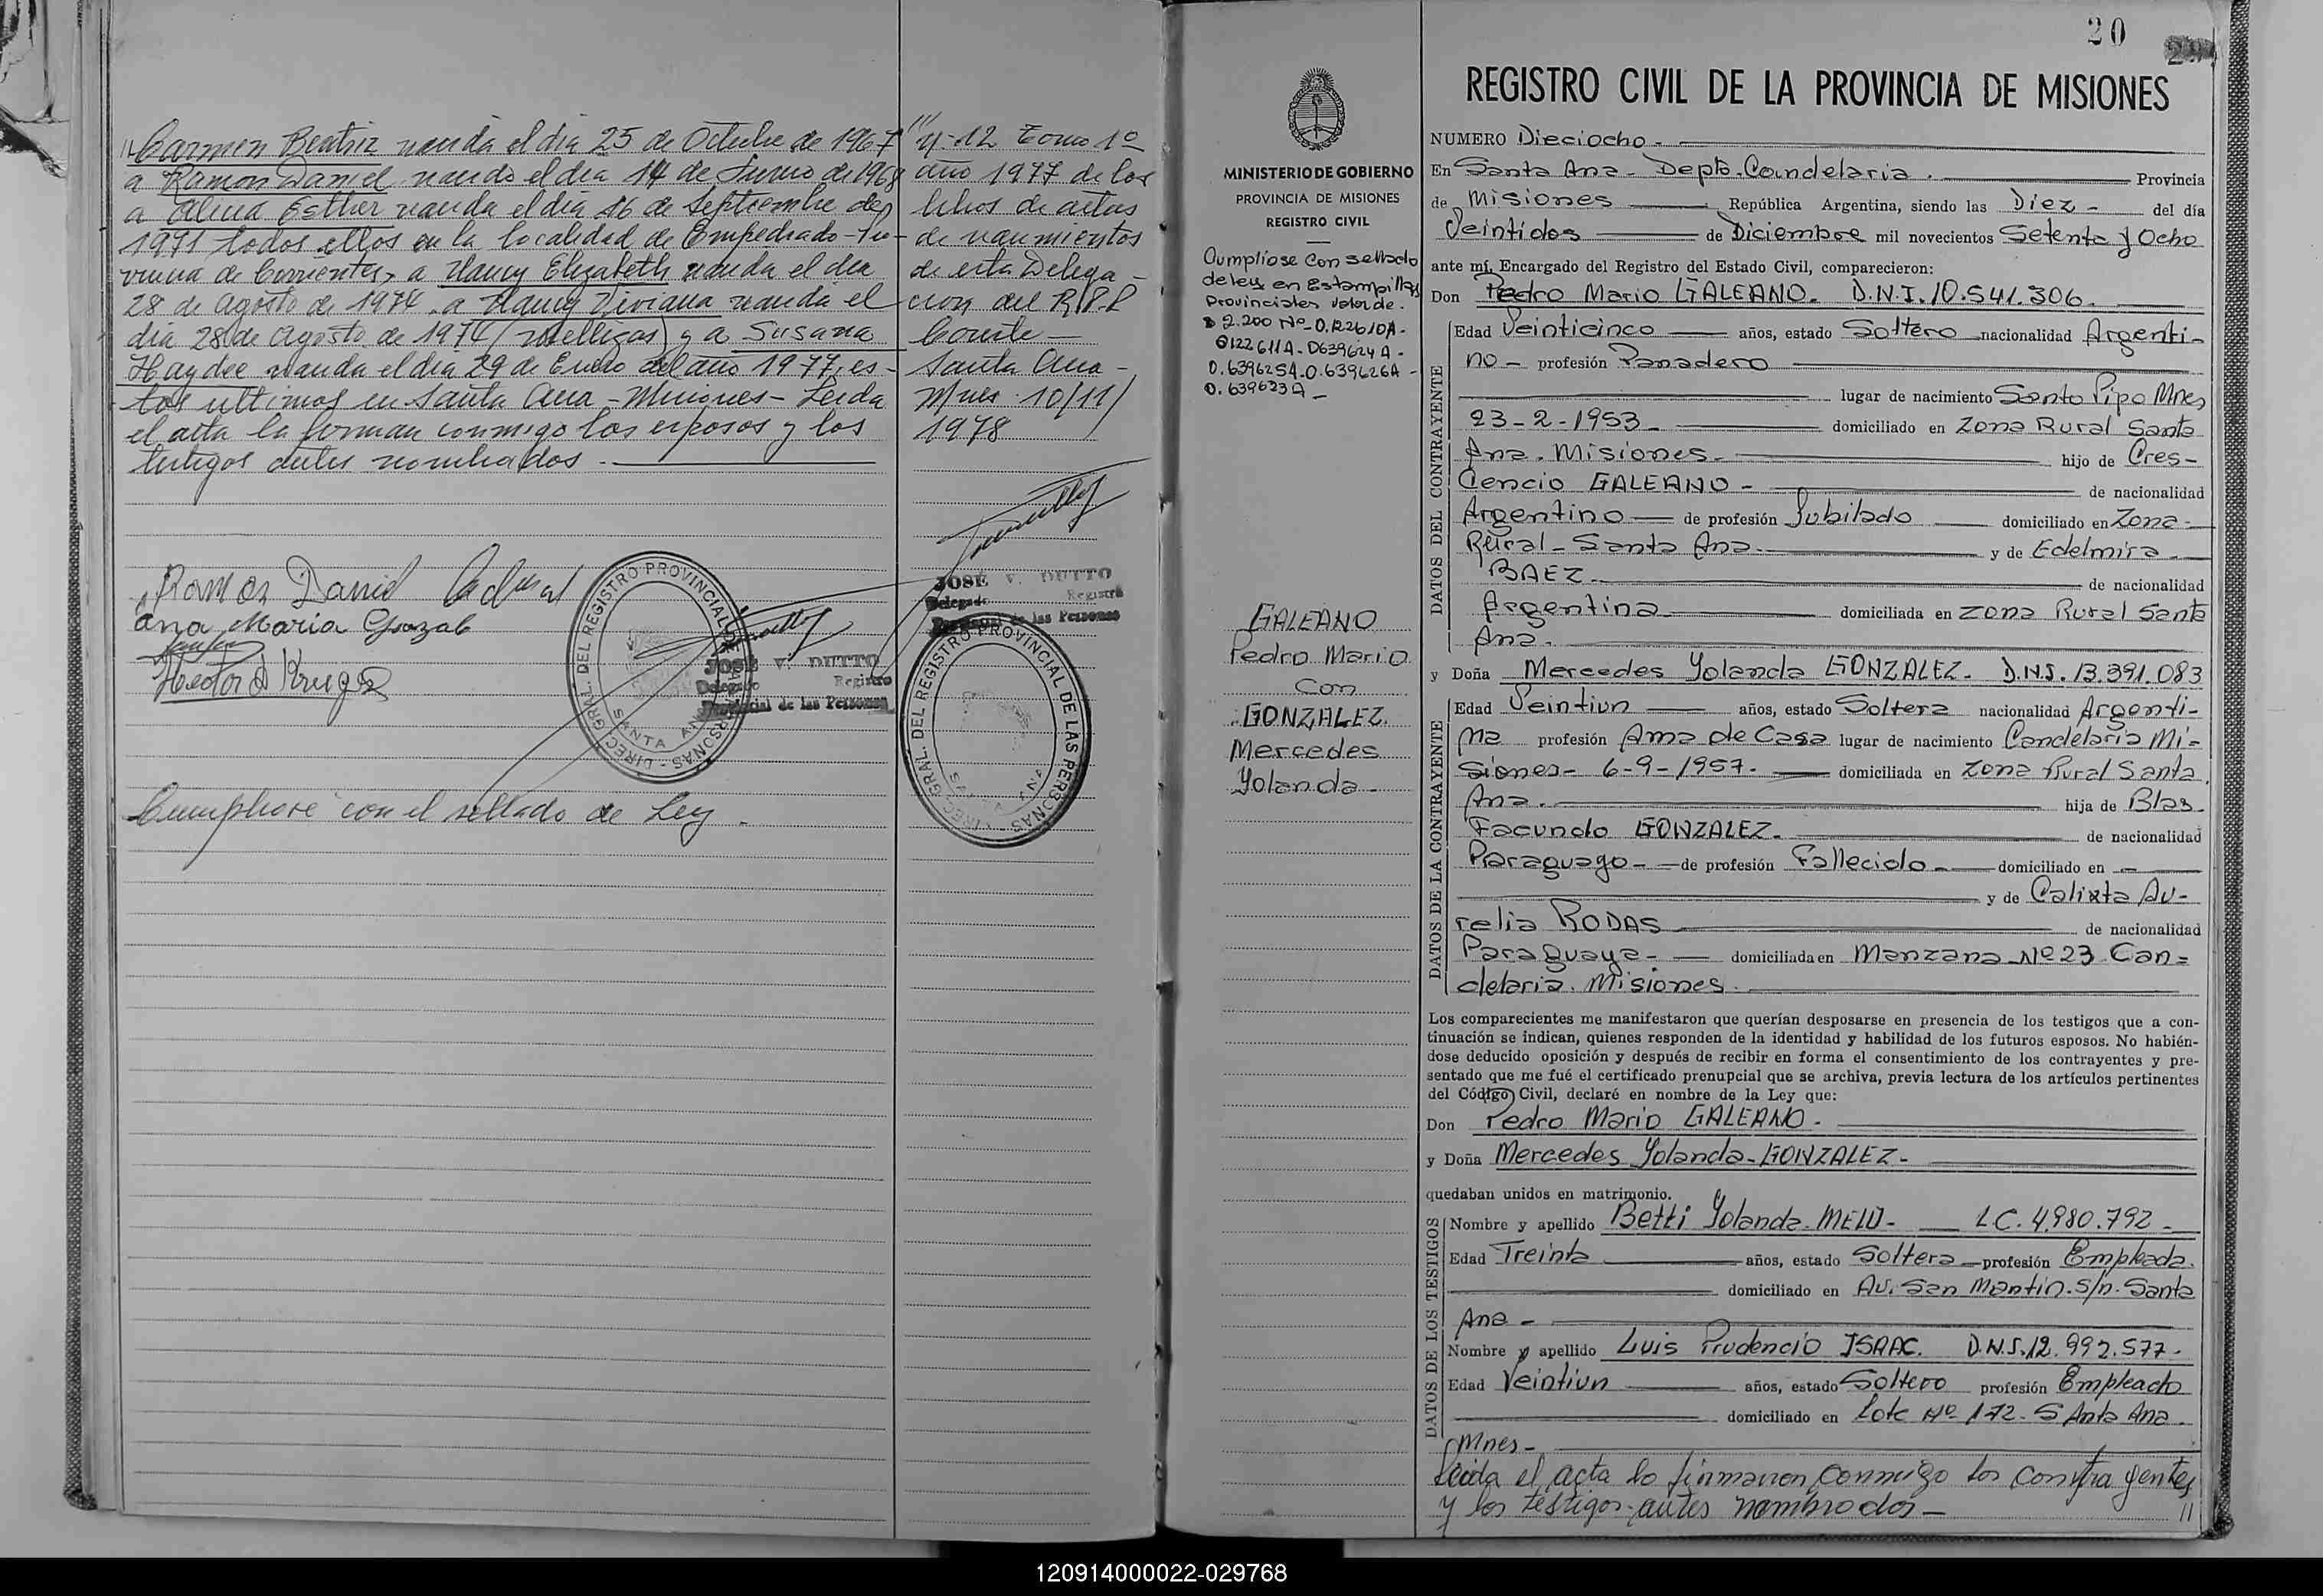 Carmen Beatriz nacida el día 25 de Octubre de 1967
a Ramon Daniel nacido el día 14 de Junio de 1968
a Alicia Esther nacida el día 16 de Septiembre de
1971 todos ellos en la localidad de Empedrado - Pro-
vincia de Corrientes, a Nancy Elizabeth nacida el día
28 de Agosto de 1974, a Nancy Viviana nacida el
día 28 de Agosto de 1974 (mellizas) y a Susana
Haydee nacida el día 29 de Enero del año 1977, es-
tos ultimos en Santa Ana - Misiones - Leida
el acta la firman conmigo los esposos y los
testigos antes nombrados.
Ramon Daniel
Ana Maria
Hector A Kruger
DIREC. GRAL. DEL REGISTRO PROVINCIAL DE LAS PERSONAS
SANTA ANA
JOSE V. DUTTO
Delegado Registro
Provincial de las Personas
Cumpliose con el sellado de Ley.
Nº 12 Tomo 1º
año 1977 de los
libros de actas
de nacimientos
de esta Delega-
cion del R.P.P.
Conste
Santa Ana -
Mnes. 10/11/
1978
JOSE V. DUTTO
Delegado Registro
Provincial de las Personas
DIREC. GRAL. DEL REGISTRO PROVINCIAL DE LAS PERSONAS
SANTA ANA
MINISTERIO DE GOBIERNO
PROVINCIA DE MISIONES
REGISTRO CIVIL
Cumpliose con sellado
de ley en Estampillas
Provinciales valor de.
$ 2.200 Nº 0.122610A.
0122611A - 0639624A -
0.639625A - 0.639626A -
0.639623A -
GALEANO
Pedro Mario
Con
GONZALEZ.
Mercedes
Yolanda -
20
REGISTRO CIVIL DE LA PROVINCIA DE MISIONES
NUMERO Dieciocho -
En Santa Ana - Depto. Candelaria. Provincia
de Misiones República Argentina, siendo las Diez - del día
Veintidos de Diciembre mil novecientos Setenta y Ocho
ante mí, Encargado del Registro del Estado Civil, comparecieron:
Don Pedro Mario GALEANO. D.N.I. 10.541.306.
DATOS DEL CONTRAYENTE
Edad Veinticinco años, estado Soltero nacionalidad Argenti-
no - profesión Panadero
lugar de nacimiento Santo Pipo Mnes
23-2-1953 - domiciliado en Zona Rural Santa
Ana. Misiones. hijo de Cres-
cencio GALEANO - de nacionalidad
Argentino de profesión Jubilado domiciliado en Zona
Rural - Santa Ana. y de Edelmira
BAEZ. de nacionalidad
Argentina domiciliada en Zona Rural Santa
Ana.
y Doña Mercedes Yolanda GONZALEZ. D.N.I. 13.391.083
DATOS DE LA CONTRAYENTE
Edad Veintiun años, estado Soltera nacionalidad Argenti-
na profesión Ama de Casa lugar de nacimiento Candelaria Mi-
siones - 6-9-1957. domiciliada en Zona Rural Santa
Ana. hija de Blas
Facundo GONZALEZ. de nacionalidad
Paraguayo - de profesión Fallecido - domiciliado en -
y de Calixta Au-
relia RODAS de nacionalidad
Paraguaya. domiciliada en Manzana Nº 23 Can-
delaria. Misiones.
Los comparecientes me manifestaron que querían desposarse en presencia de los testigos que a con-
tinuación se indican, quienes responden de la identidad y habilidad de los futuros esposos. No habién-
dose deducido oposición y después de recibir en forma el consentimiento de los contrayentes y pre-
sentado que me fué el certificado prenupcial que se archiva, previa lectura de los artículos pertinentes
del Código Civil, declaré en nombre de la Ley que:
Don Pedro Mario GALEANO.
y Doña Mercedes Yolanda GONZALEZ -
quedaban unidos en matrimonio.
DATOS DE LOS TESTIGOS
Nombre y apellido Betti Yolanda MELO - L.C. 4.980.792 -
Edad Treinta años, estado Soltera profesión Empleada.
domiciliado en Av. San Martin. s/n. Santa
Ana -
Nombre y apellido Luis Prudencio ISAAC. D.N.I. 12.992.577.
Edad Veintiun años, estado Soltero profesión Empleado
domiciliado en Lote Nº 172 - Santa Ana.
Mnes -
Leida el acta lo firmaron conmigo los contrayentes
y los testigos antes nombrados - //
120914000022-029768